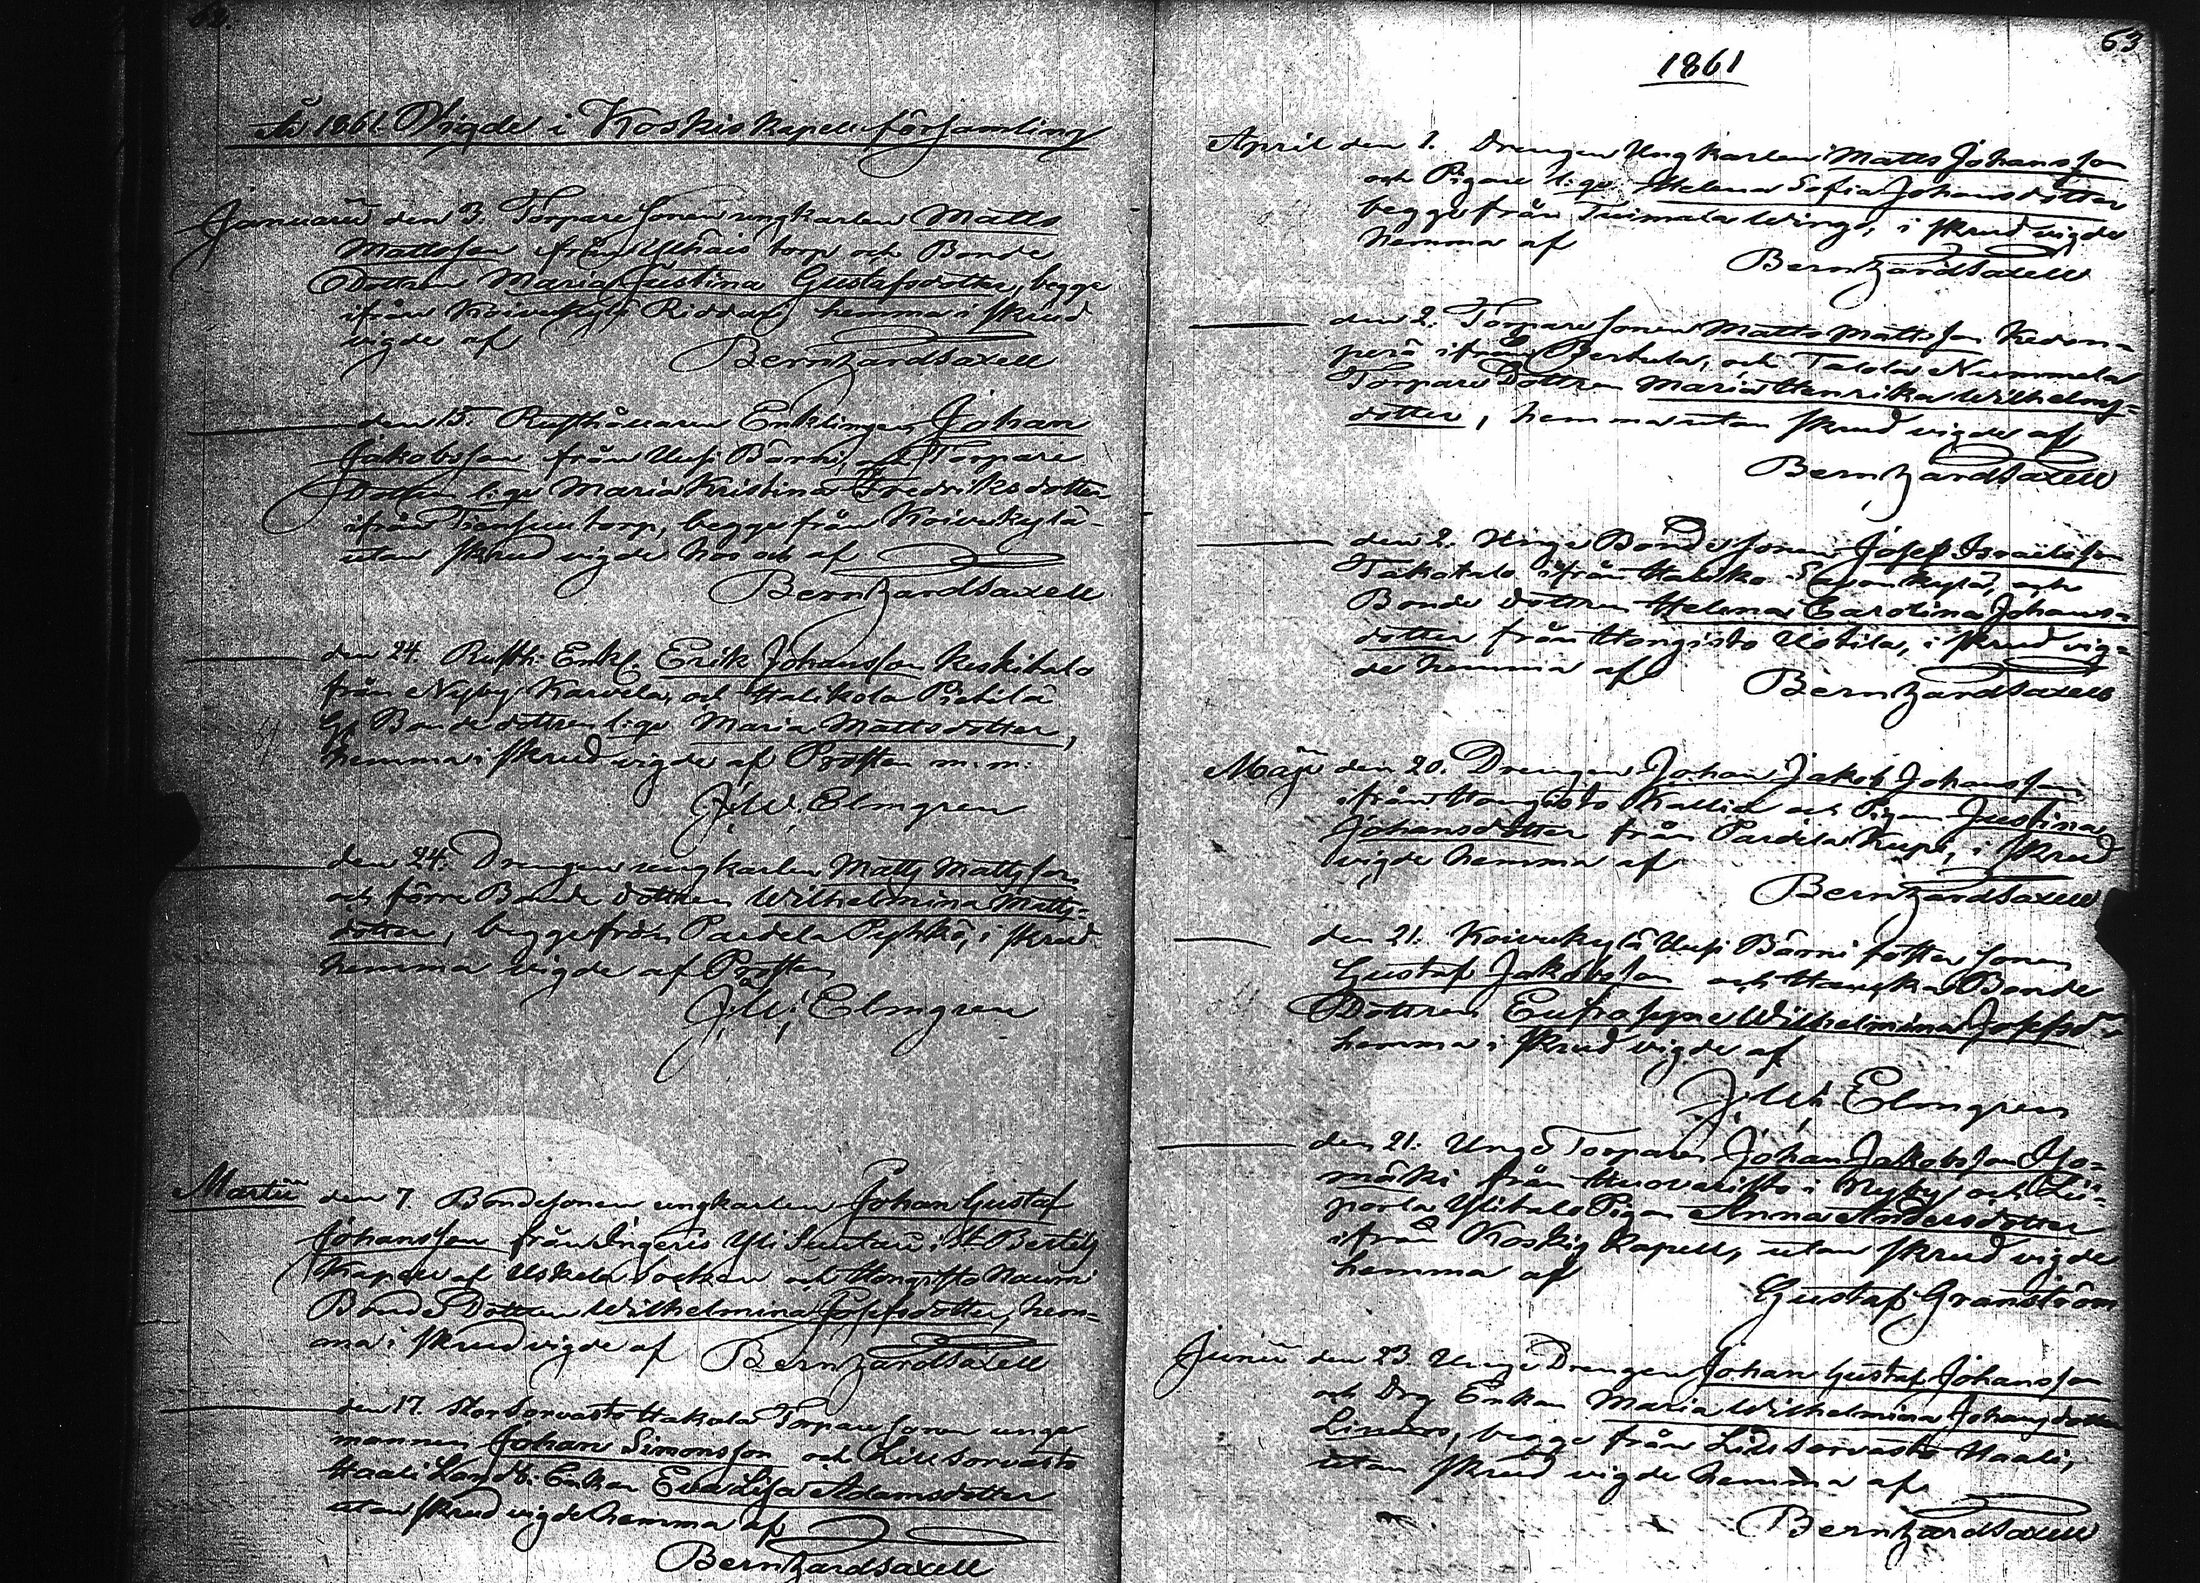 62.
År 1861 Vigde i Koskis kapell församling
Januarii den 3. Torpare sonen ungkarlen Matts
Mattsson från torp och Bonde
Dottren Maria Justina Gustafsdotter, begge
ifrån Koivukylä Riddar, hemma i skrud
vigde af
Bernh ard Saxell
den 15. Rusthållaren Enklingen Johan
Jakobsson från Uusi Bärni, och Torpare
Dottren l:ge Maria Kristina Fredriksdotter
ifrån torp, begge från Koivukylä
utan skrud vigde hos och af
Bernh ard Saxell
den 24. Rusth. Enkl. Erik Johansson Keskitalo
från Nyby Karvela, och Halikola Pietilä
Bondedottren l:ge Maria Mattsdotter,
hemma i skrud vigde af Prosten m.m.
J. W. Elmgren
den 24. Drengen ungkarlen Matts Mattsson
och förre Bonde dottren Wilhelmina Matts=
dotter, begge från Pardela i skrud
hemma vigde af Prosten
J. W. Elmgren
Martii den 7. Bondesonen ungkarlen Johan Gustaf
Johansson från Ingeris Yli Suutari i St Bertils
Kapell af Uskela Socken och Hongisto Naumi
Bonde Dottren Wilhelmina Josefsdotter, hem=
ma i skrud vigde af Bernh ard Saxell
den 17. Storsorvasto Hakala Torpare sonen unge
mannen Johan Simonsson och Lillsorvasto
Haali Landb. Enkan Eva Lisa Adamsdotter
utan skrud vigde hemma af
Bernh ard Saxell
63
1861
April den 1. Drengen Ungkarlen Matts Johansson
och Pigan l:ge Helena Sofia Johansdotter
begge från Tuimala Wingo, i skrud vigde
hemma af
Bernh ard Saxell
den 2. Torpare sonen Matts Mattsson Kedon=
perä ifrån Bertula, och Talola Nummela
Torpare Dottren Maria Henrika Wilhelms=
dotter, hemma utan skrud vigde af
Bernh ard Saxell
den 2. Unge Bonde sonen Josef Israelsson
Takatalo ifrån och
Bonde dottren Helena Carolina Johans=
dotter från Hongisto Ustila, i skrud vig=
de hemma af
Bernh ard Saxell
Maji den 20. Drengen Johan Jakob Johansson
ifrån Hongisto Kallia och Pigan Justina
Johansdotter från Pardela Kupi, i skrud
vigde hemma af
Bernh ard Saxell
den 21. Koivukylä Uusi Bärni foster sonen
Gustaf Jakobsson och Bonde
Dottren Eufrosyne Wilhelmina Josefsdr
hemma i skrud vigde af
J. W. Elmgren
den 21. Unge Torparen Johan Jakobsson Iso=
mäki från i Nyby och Li=
porla Ylitalo Pigan Anna Andersdotter
ifrån Koskis Kapell, utan skrud vigde
hemma af
Gustaf Granström
Junii den 23. Unge Drengen Johan Gustaf Johansson
och Drg Enkan Maria Wilhelmina Johansdotter
Linders, begge från Lillsorvasto Haali,
utan skrud vigde hemma af
Bernh ard Saxell